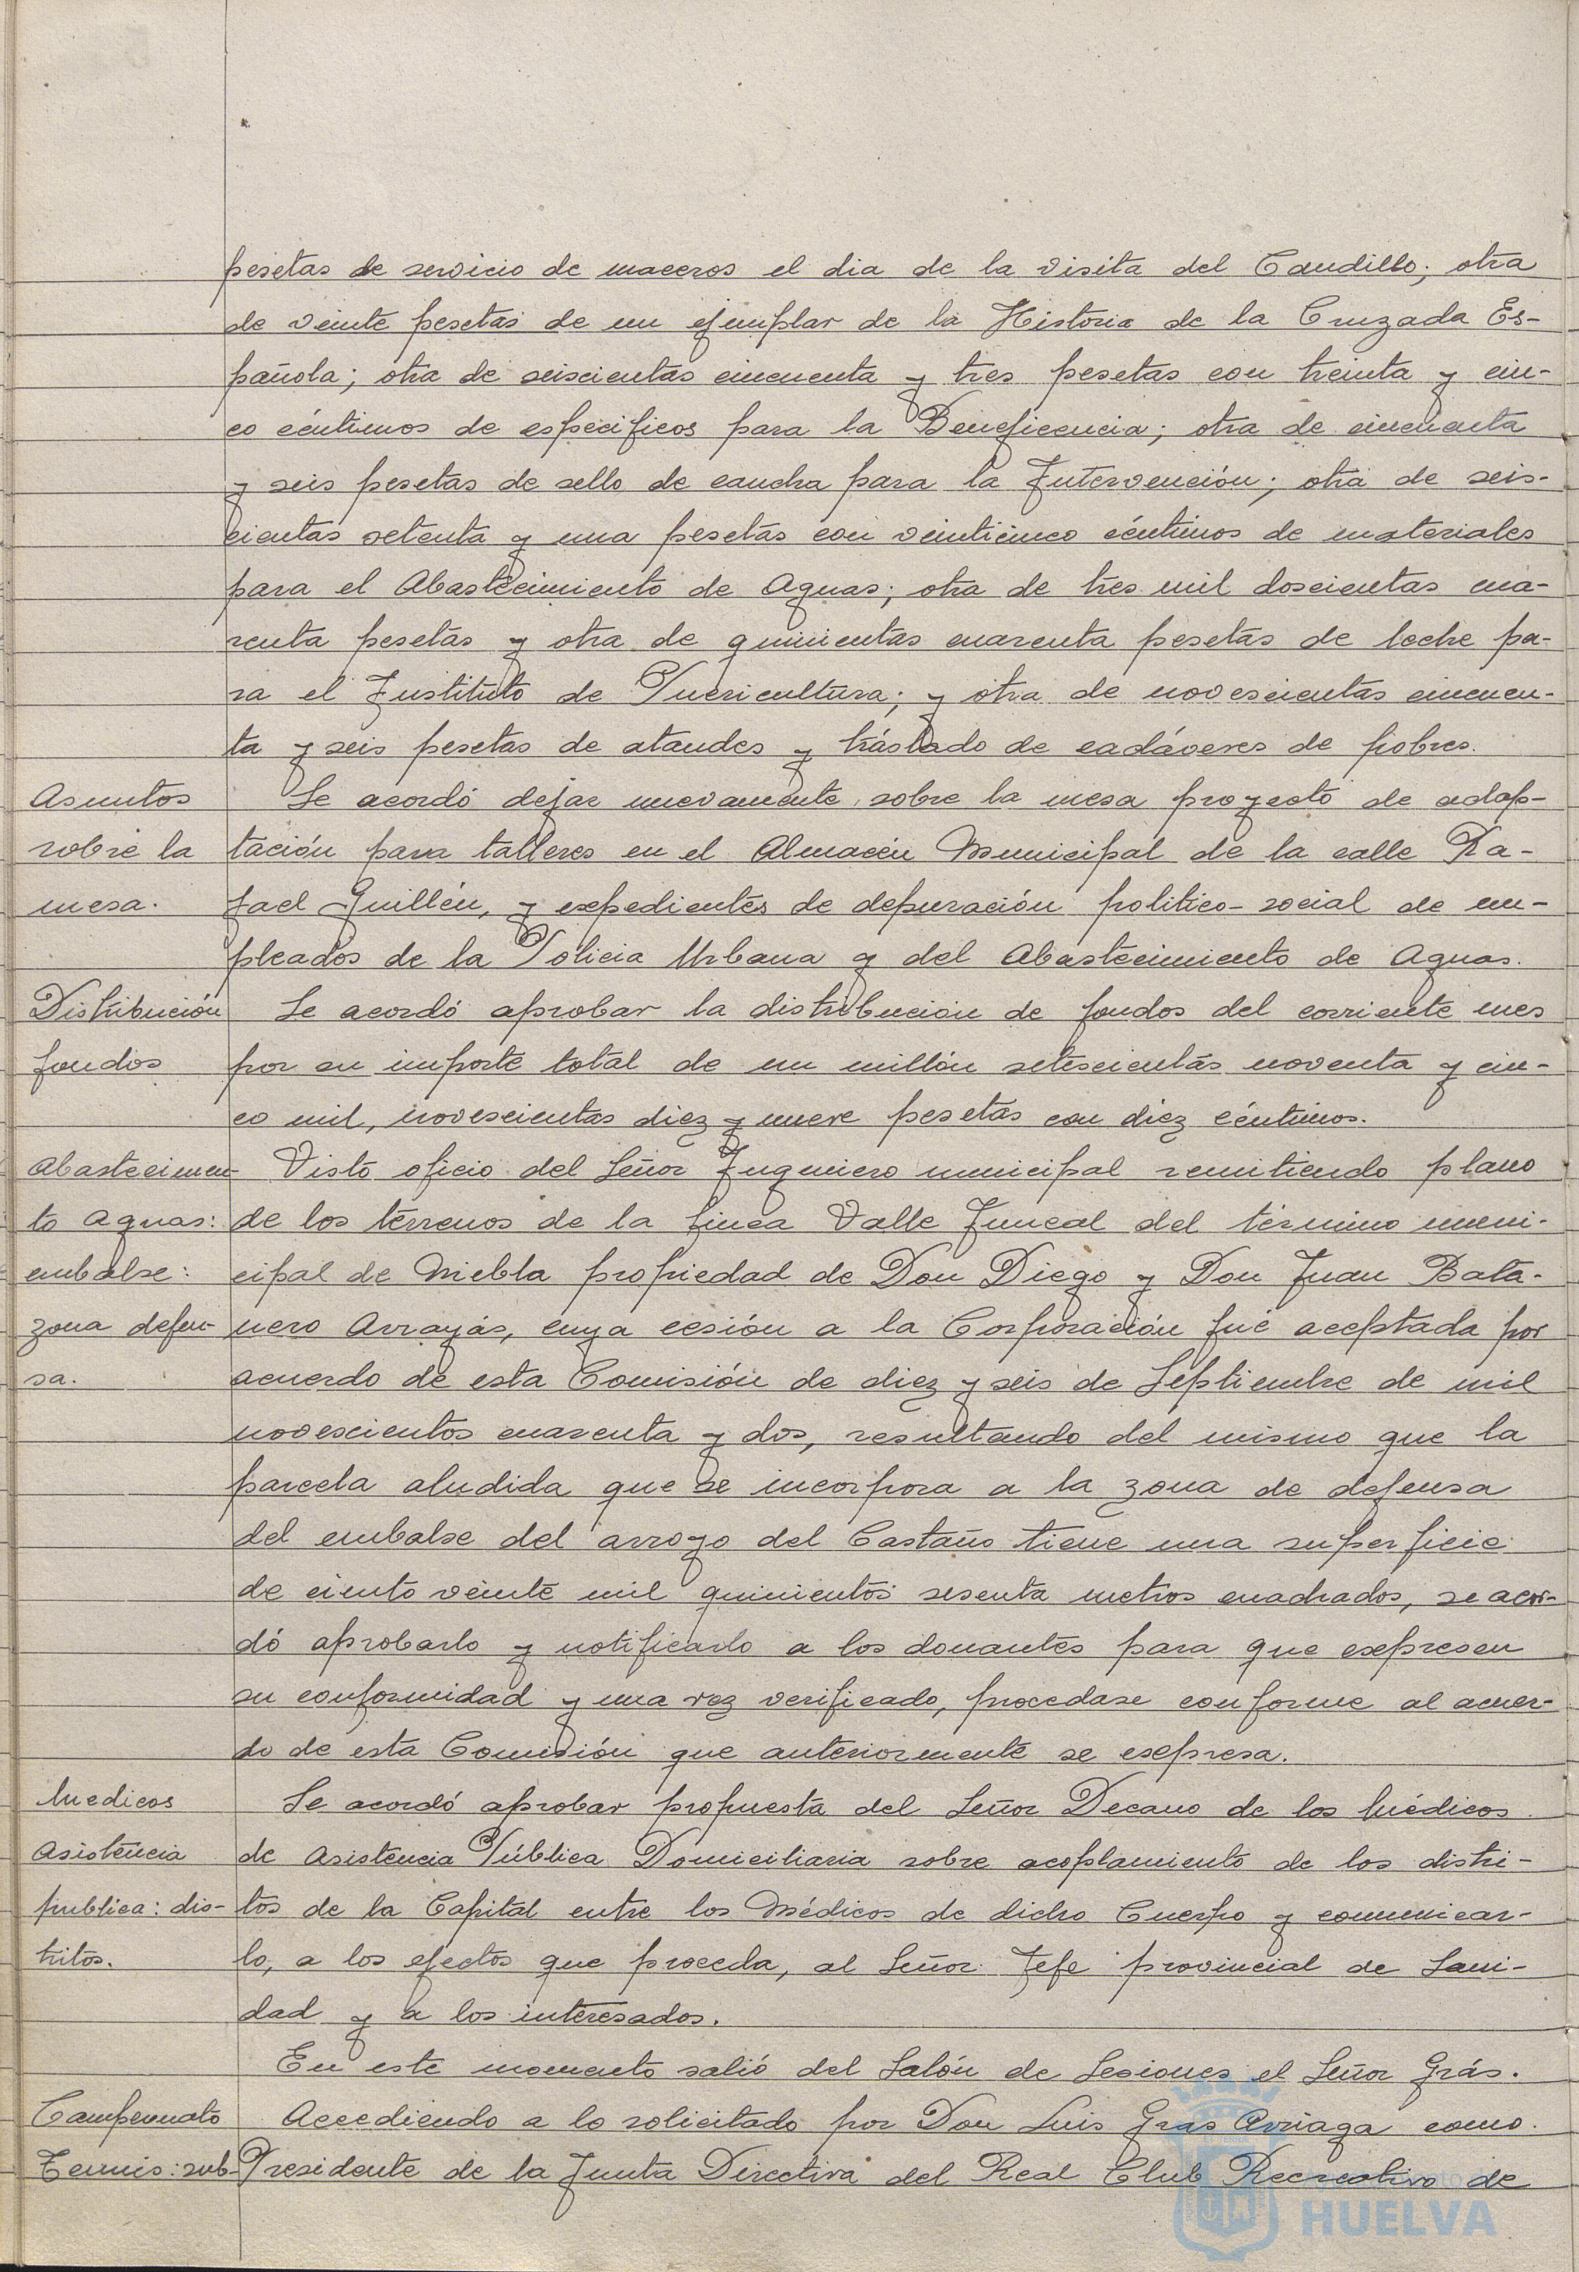 pesetas de servicio de maceros el dia de la visita del Caudillo; otra
de veinte pesetas de un ejemplar de la Historia de la Cruzada Es-
pañola; otra de seiscientas cincuenta y tres pesetas con treinta y cin-
co céntimos de especificos para la Beneficencia; otra de cincuenta
y seis pesetas de sello de caucha para la Intervención; otra de seis-
cientas setenta y una pesetas con veinticinco céntimos de materiales
para el Abastecimiento de Aguas; otra de tres mil doscientas cua-
renta pesetas y otra de quinientas cuarenta pesetas de leche pa-
ra el Instituto de Puericultura; y otra de novescientas cincuen-
ta y seis pesetas de ataudes y tráslado de cadáveres de pobres.
Asuntos
sobre la
mesa.
Se acordó dejar nuevamente sobre la mesa proyecto de adap-
tación para talleres en el Almacén Municipal de la calle Ra-
fael Guillén, y expedientes de depuración politico-social de em-
pleados de la Policia Urbana y del Abastecimiento de Aguas.
Distribución
fondos
Se acordó aprobar la distribución de fondos del corriente mes
por su importe total de un millón setescientas noventa y cin-
co mil, novescientas diez y nueve pesetas con diez céntimos.
Abastecimien-
to Aguas:
embalse:
zona defen-
sa.
Visto oficio del Señor Ingeniero municipal remitiendo plano
de los terrenos de la finca Valle Juncal del término muni-
cipal de Niebla propiedad de Don Diego y Don Juan Bata-
nero Arrayás, cuya cesión a la Corporación fué aceptada por
acuerdo de esta Comisión de diez y seis de Septiembre de mil
novescientos cuarenta y dos, resultando del mismo que la
parcela aludida que se incorpora a la zona de defensa
del embalse del arroyo del Castaño tiene una superficie
de ciento veinte mil quinientos sesenta metros cuadrados, se acor-
dó aprobarlo y notificarlo a los donantes para que expresen
su conformidad y una vez verificado, procedase conforme al acuer-
do de esta Comisión que anteriormente se expresa.
Medicos
Asistencia
publica: dis-
tritos.
Se acordó aprobar propuesta del Señor Decano de los Médicos
de Asistencia Pública Domiciliaria sobre acoplamiento de los distri-
tos de la Capital entre los Médicos de dicho Cuerpo y comunicar-
lo, a los efectos que proceda, al Señor Jefe provincial de Sani-
dad y a los interesados.
En este momento salió del Salón de Sesiones el Señor Grás.
Campeonato
Tennis: sub-
Accediendo a lo solicitado por Don Luis Gras Arriaga como
Presidente de la Junta Directiva del Real Club Recreativo de
HUELVA